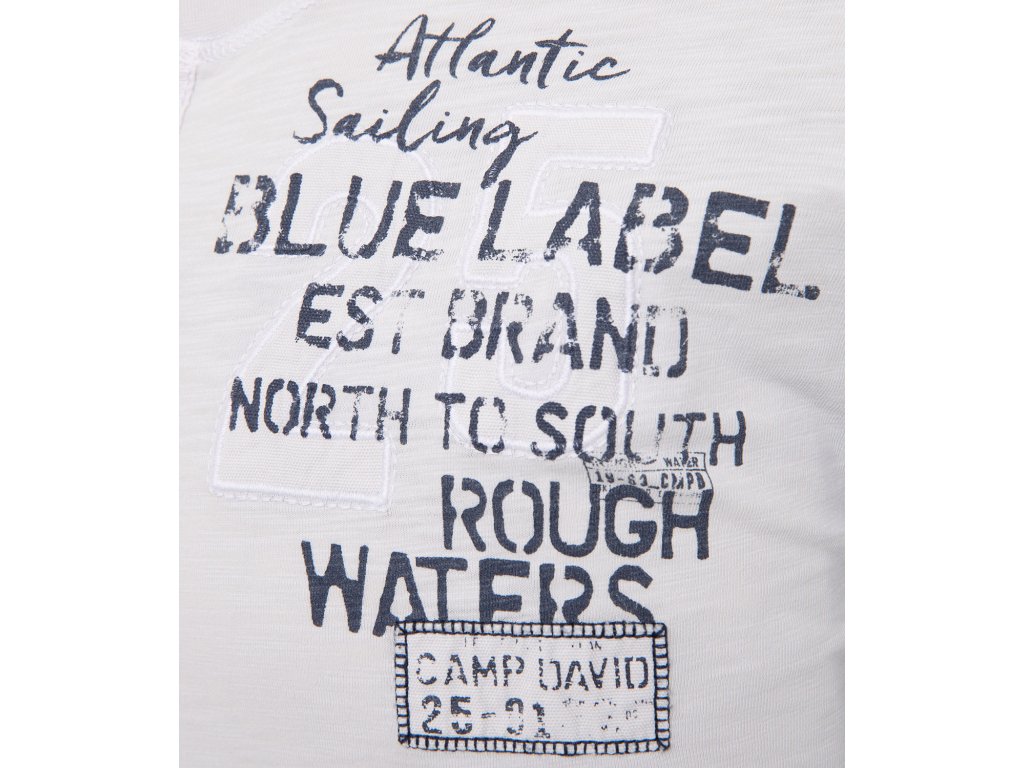 Atlantic
Sailing
25
BLUE LABEL
EST BRAND
NORTH TO SOUTH
WATER
19-63_CMPD
ROUGH
WATERS
CAMP DAVID
25-31